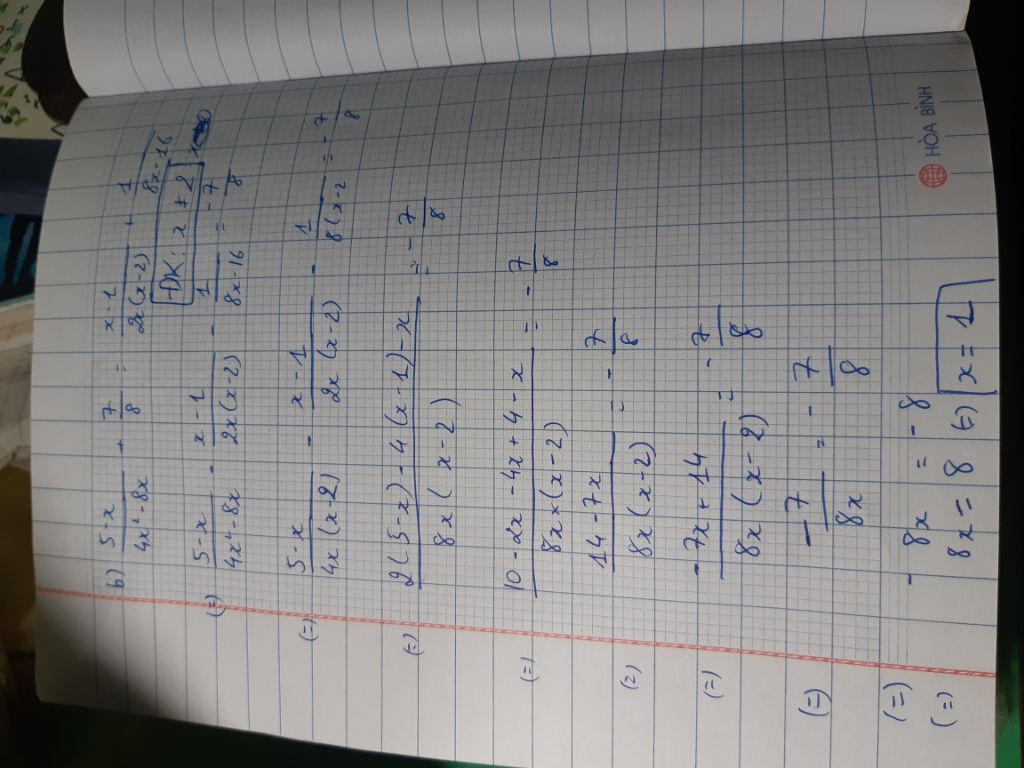 b) (5-x)/(4x²-8x) + 7/8 = (x-1)/(2x(x-2)) + 1/(8x-16)
ĐK: x ≠ 2
(=) (5-x)/(4x²-8x) - (x-1)/(2x(x-2)) - 1/(8x-16) = -7/8
(=) (5-x)/(4x(x-2)) - (x-1)/(2x(x-2)) - 1/(8(x-2 = -7/8
(=) (2(5-x)-4(x-1)-x)/(8x(x-2)) = -7/8
(=) (10-2x-4x+4-x)/(8x(x-2)) = -7/8
(=) (14-7x)/(8x(x-2)) = -7/8
(=) (-7x+14)/(8x(x-2)) = -7/8
(=) -7/8x = -7/8
(=) -8x = -8
(=) 8x = 8 (=) x = 1
HÒA BÌNH